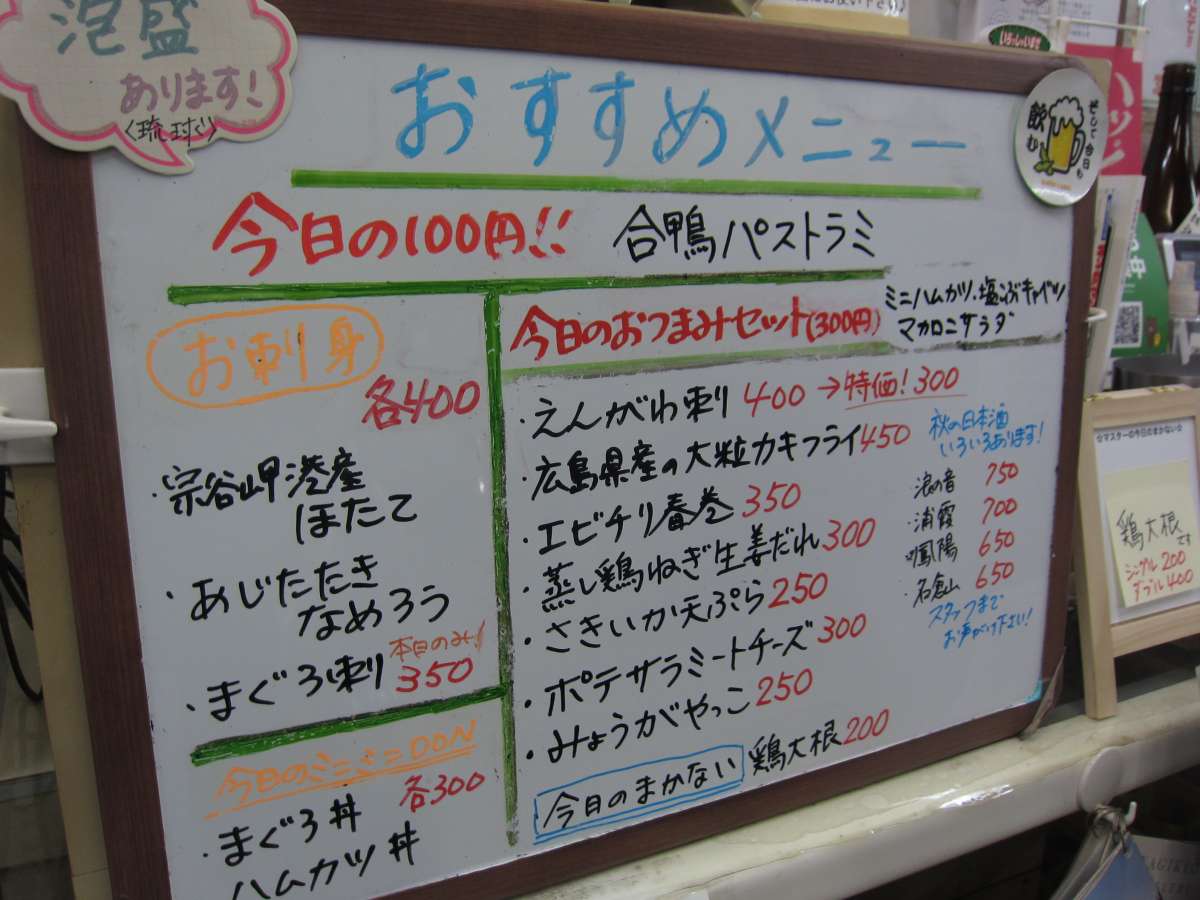 泡盛
あります!
〈琉球〉
おすすめメニュー
そして今日も
飲む
いらっしゃいませ
今日の100円!! 合鴨パストラミ
お刺身
各400
・宗谷岬港産
ほたて
・あじたたき
なめろう
本日のみ!
・まぐろ刺 350
今日のミニミニDON
各300
・まぐろ丼
ハムカツ丼
今日のおつまみセット(300円)
ミニハムカツ・塩こぶキャベツ
マカロニサラダ
・えんがわ刺 400→特価!300
・広島県産の大粒カキフライ450
・エビチリ春巻 350
・蒸し鶏ねぎ生姜だれ300
・さきいか天ぷら250
・ポテサラミートチーズ300
・みょうがやっこ250
今日のまかない 鶏大根200
秋の日本酒
いろいろあります!
浪の音 750
・浦霞 700
・鳳陽 650
・石倉山 650
スタッフまで
お声がけ下さい!
☆マスターの今日のまかない☆
鶏大根です
シングル 200
ダブル 400